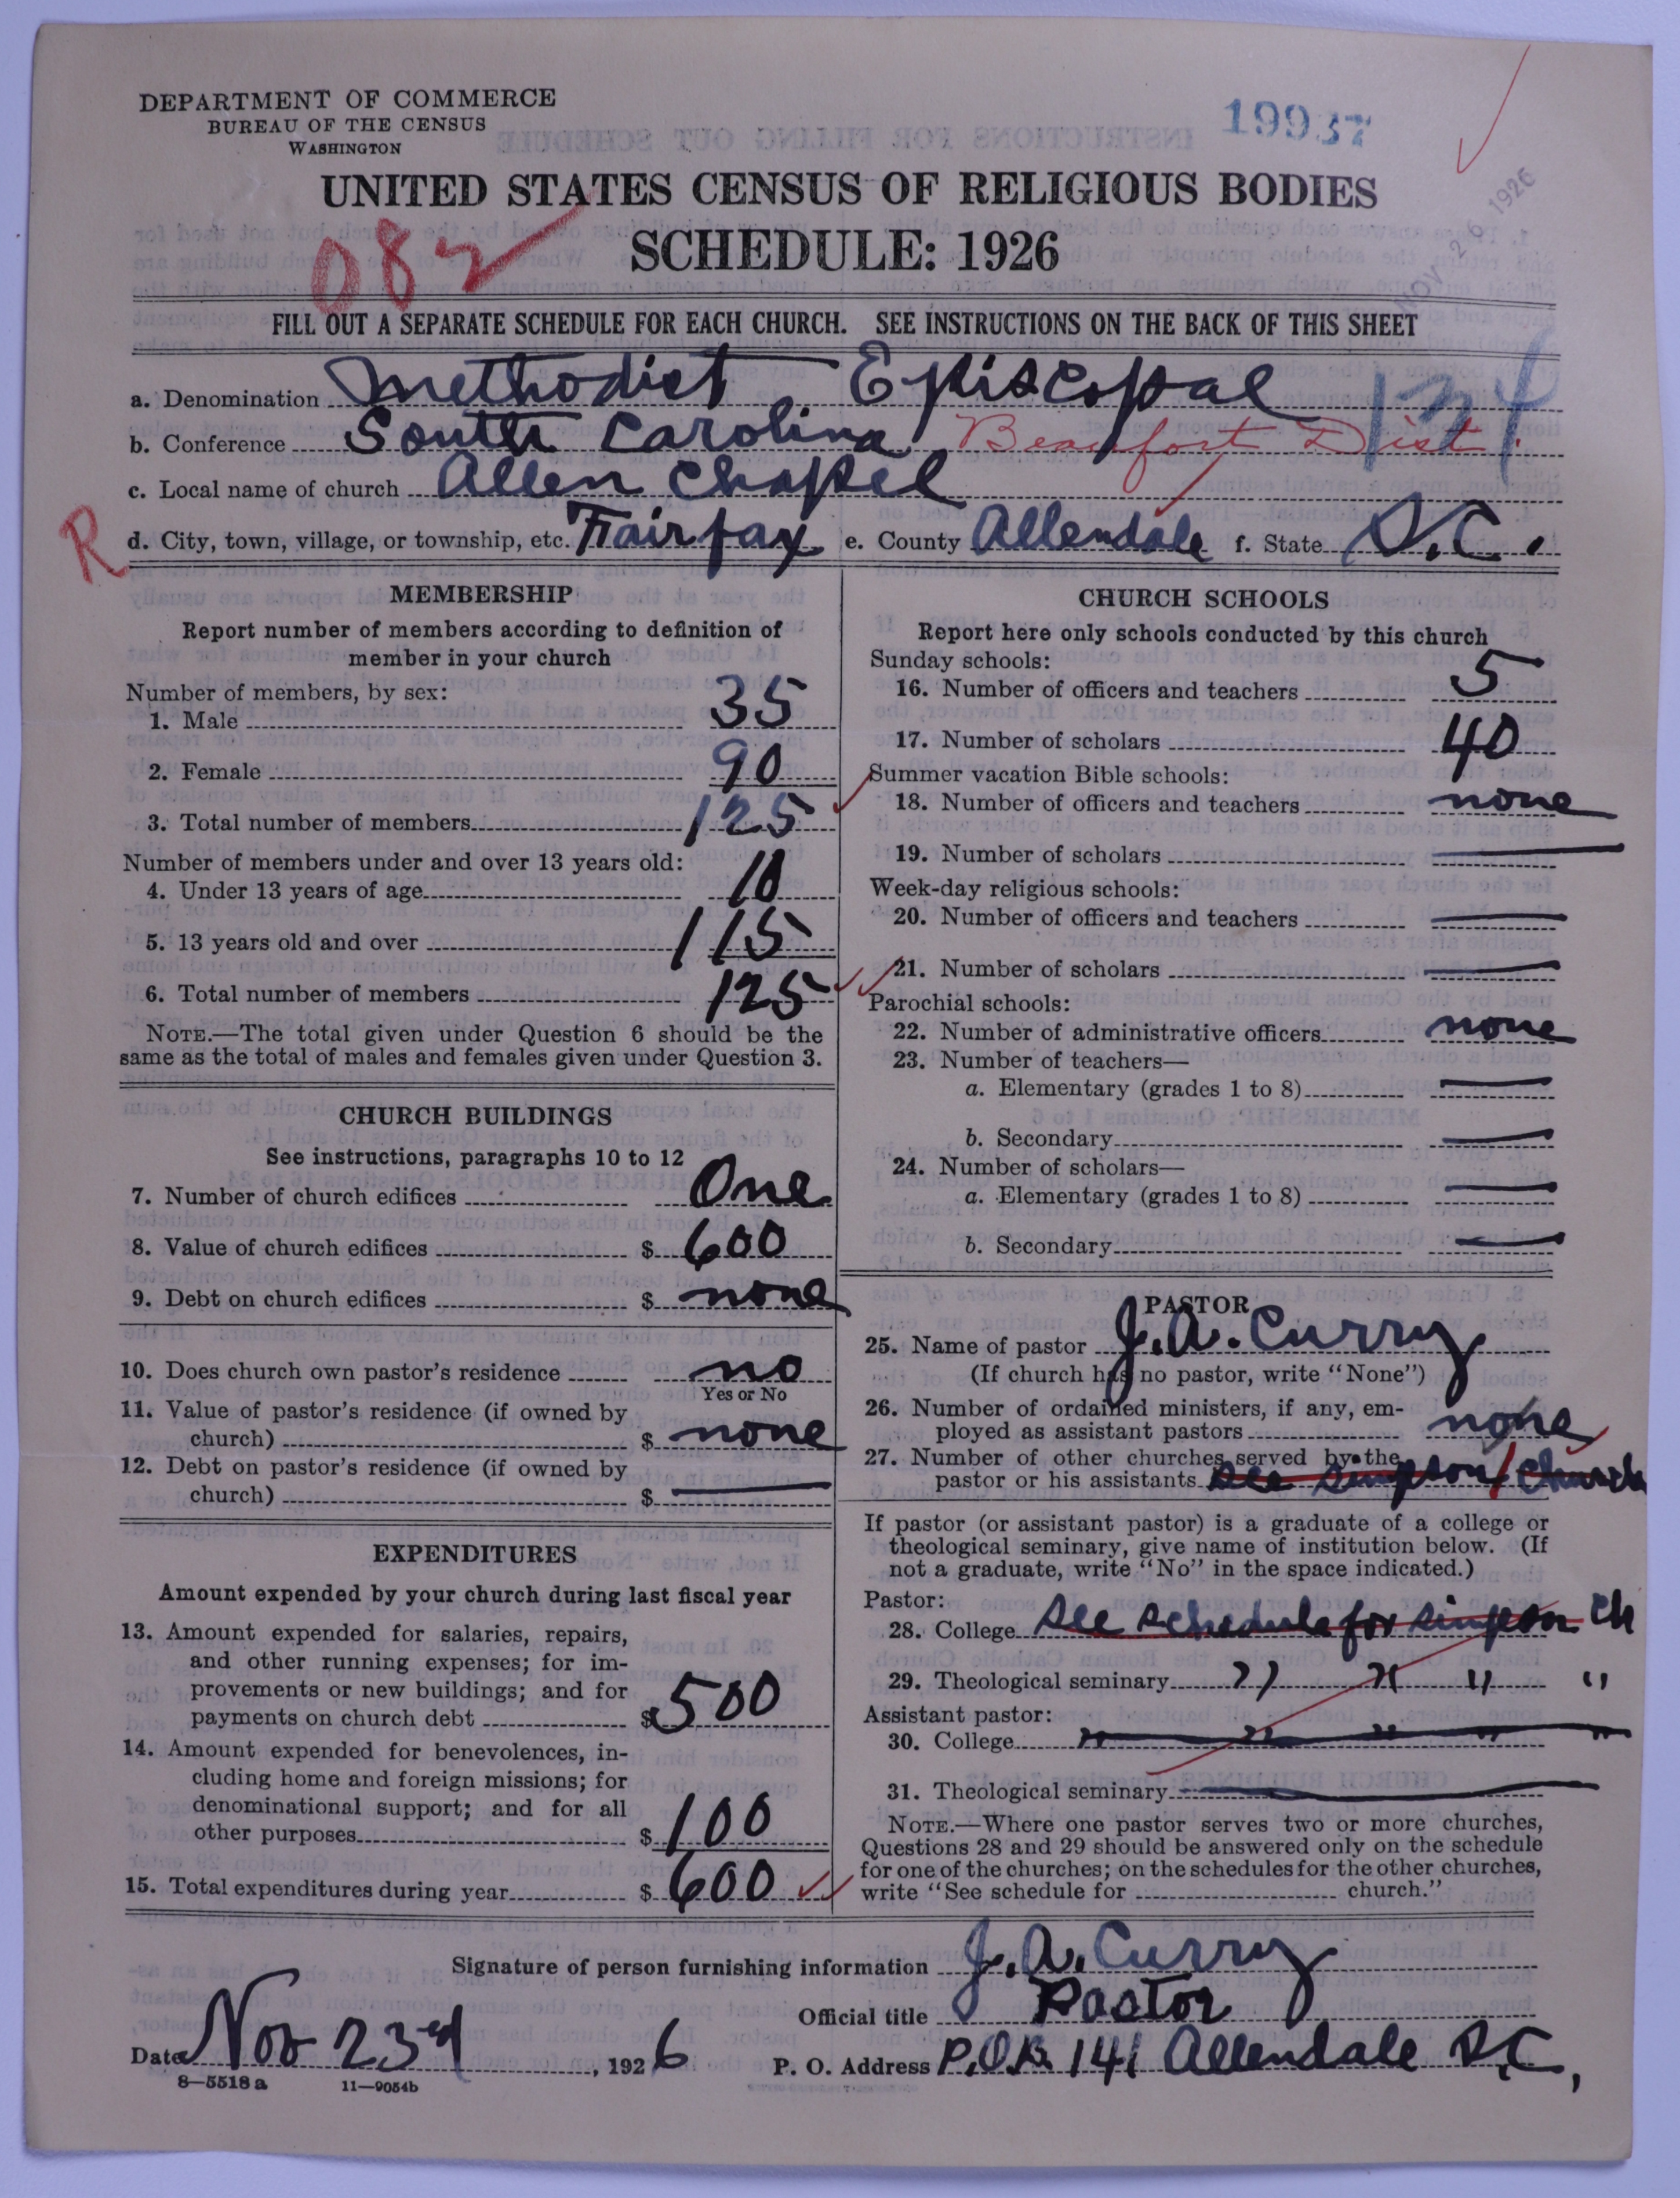 DEPARTMENT OF COMMERCE
BUREAU OF THE CENSUS
WASHINGTON
19937
UNITED STATES CENSUS OF RELIGIOUS BODIES
NOV 26 1926
082
SCHEDULE: 1926
FILL OUT A SEPARATE SCHEDULE FOR EACH CHURCH. SEE INSTRUCTIONS ON THE BACK OF THIS SHEET
a. Denomination Methodist Episcopal
b. Conference South Carolina Beaufort Dist.
c. Local name of church Allen Chapel
R
d. City, town, village, or township, etc. Fairfax e. County Allendale f. State S.C.
MEMBERSHIP
Report number of members according to definition of
member in your church
Number of members, by sex:
1. Male 35
2. Female 90
3. Total number of members 125
Number of members under and over 13 years old:
4. Under 13 years of age 10
5. 13 years old and over 115
6. Total number of members 125
NOTE.—The total given under Question 6 should be the
same as the total of males and females given under Question 3.
CHURCH BUILDINGS
See instructions, paragraphs 10 to 12
7. Number of church edifices One
8. Value of church edifices $ 600
9. Debt on church edifices $ none
10. Does church own pastor's residence no
Yes or No
11. Value of pastor's residence (if owned by
church) $ none
12. Debt on pastor's residence (if owned by
church) $
EXPENDITURES
Amount expended by your church during last fiscal year
13. Amount expended for salaries, repairs,
and other running expenses; for im-
provements or new buildings; and for
payments on church debt $ 500
14. Amount expended for benevolences, in-
cluding home and foreign missions; for
denominational support; and for all
other purposes $ 100
15. Total expenditures during year $ 600
CHURCH SCHOOLS
Report here only schools conducted by this church
Sunday schools:
16. Number of officers and teachers 5
17. Number of scholars 40
Summer vacation Bible schools:
18. Number of officers and teachers none
19. Number of scholars
Week-day religious schools:
20. Number of officers and teachers
21. Number of scholars
Parochial schools:
22. Number of administrative officers none
23. Number of teachers—
a. Elementary (grades 1 to 8)
b. Secondary
24. Number of scholars—
a. Elementary (grades 1 to 8)
b. Secondary
PASTOR
25. Name of pastor J. A. Curry
(If church has no pastor, write "None")
26. Number of ordained ministers, if any, em-
ployed as assistant pastors none
27. Number of other churches served by the
pastor or his assistants see simpson church
If pastor (or assistant pastor) is a graduate of a college or
theological seminary, give name of institution below. (If
not a graduate, write "No" in the space indicated.)
Pastor:
28. College see schedule for simpson ch
29. Theological seminary " " " "
Assistant pastor:
30. College " " " " "
31. Theological seminary
NOTE.—Where one pastor serves two or more churches,
Questions 28 and 29 should be answered only on the schedule
for one of the churches; on the schedules for the other churches,
write "See schedule for church."
Signature of person furnishing information J. A. Curry
Official title Pastor
Date Nov 23rd, 1926 P. O. Address P.O.B. 141 Allendale S.C,
8—5518 a 11—9054b